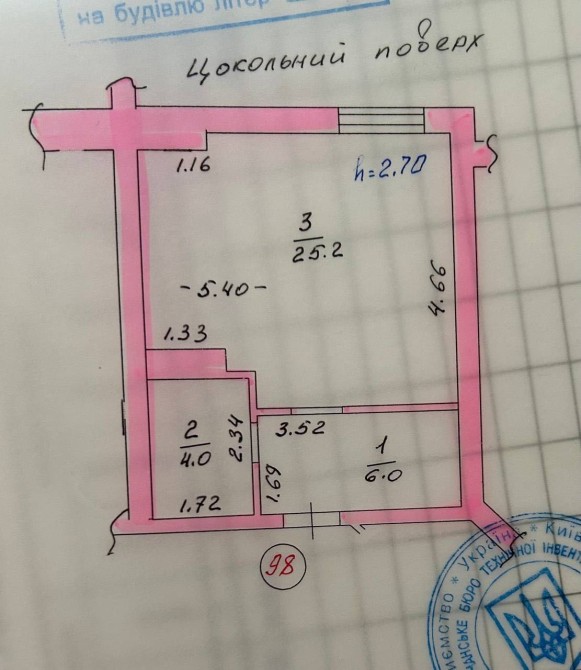 на будівлю літер
Цокольний поверх
1.16
h=2.70
3
25.2
-5.40-
4.66
1.33
2
4.0
2.34
3.52
1
6.0
1.69
1.72
98
Україна * Київ
ТЕХНІЧНОЇ ІНВЕНТ
БЮРО